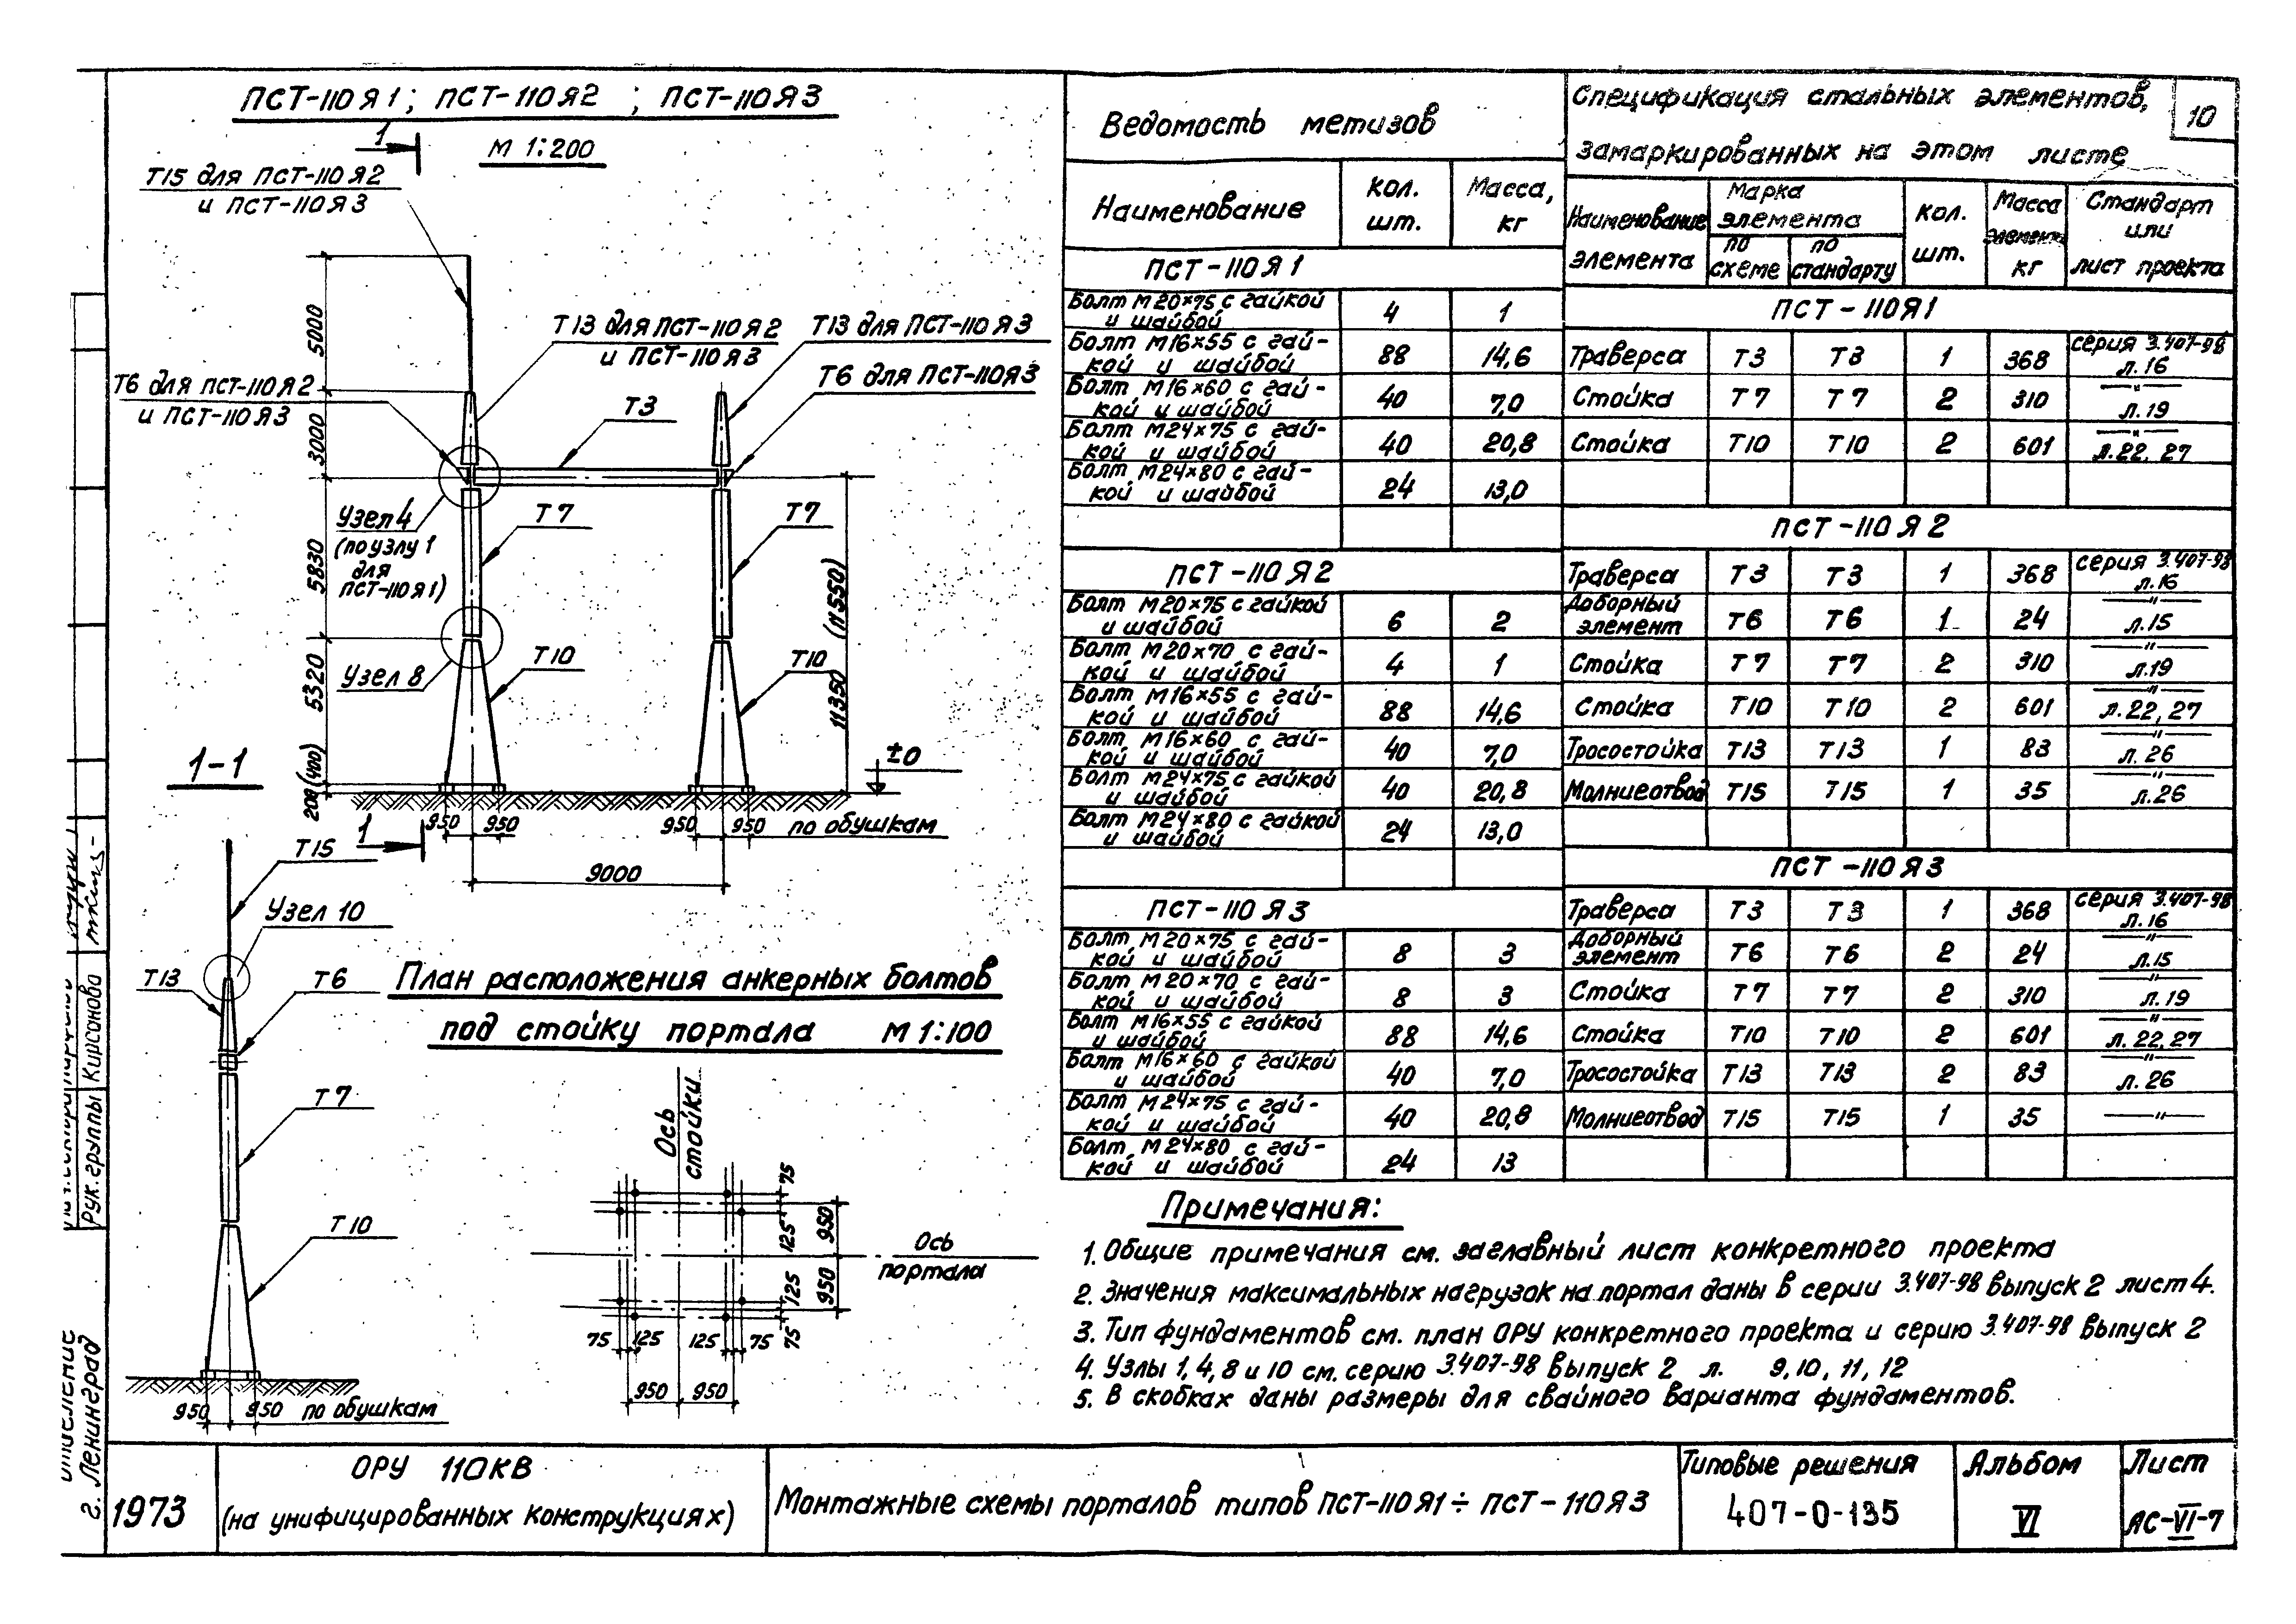 ПСТ-110Я1; ПСТ-110Я2 ; ПСТ-110Я3
М 1:200
1
Т15 для ПСТ-110Я2
и ПСТ-110Я3
Т13 для ПСТ-110Я2
и ПСТ-110Я3
Т13 для ПСТ-110Я3
Т6 для ПСТ-110Я2
и ПСТ-110Я3
Т6 для ПСТ-110Я3
Т3
5000
3000
5830
5320
200 (400)
Узел 4
(по узлу 1
для
ПСТ-110Я1)
Т7
Т7
Узел 8
Т10
Т10
11350 (11550)
±0
1
950
950
950
950
по обушкам
9000
1-1
Т15
Узел 10
Т13
Т6
Т7
Т10
950
950
по обушкам
План расположения анкерных болтов
под стойку портала М 1:100
Ось
стойки
Ось
портала
75
125
125
75
950
950
75
125
125
75
950
950
Ведомость метизов
Наименование
Кол.
шт.
Масса,
кг
ПСТ-110Я1
Болт М20×75 с гайкой
и шайбой 4 1
Болт М16×55 с гай-
кой и шайбой 88 14,6
Болт М16×60 с гай-
кой и шайбой 40 7,0
Болт М24×75 с гай-
кой и шайбой 40 20,8
Болт М24×80 с гай-
кой и шайбой 24 13,0
ПСТ-110Я2
Болт М20×75 с гайкой
и шайбой 6 2
Болт М20×70 с гай-
кой и шайбой 4 1
Болт М16×55 с гай-
кой и шайбой 88 14,6
Болт М16×60 с гай-
кой и шайбой 40 7,0
Болт М24×75 с гайкой
и шайбой 40 20,8
Болт М24×80 с гайкой
и шайбой 24 13,0
ПСТ-110Я3
Болт М20×75 с гай-
кой и шайбой 8 3
Болт М20×70 с гай-
кой и шайбой 8 3
Болт М16×55 с гайкой
и шайбой 88 14,6
Болт М16×60 с гайкой
и шайбой 40 7,0
Болт М24×75 с гай-
кой и шайбой 40 20,8
Болт М24×80 с гай-
кой и шайбой 24 13
Спецификация стальных элементов,
замаркированных на этом листе
10
Наименование
элемента
Марка
элемента
по
схеме
по
стандарту
Кол.
шт.
Масса
элемента
кг
Стандарт
или
лист проекта
ПСТ-110Я1
Траверса Т3 Т3 1 368 серия 3.407-98
л.16
Стойка Т7 Т7 2 310 —"—
л.19
Стойка Т10 Т10 2 601 —"—
л.22, 27
ПСТ-110Я2
Траверса Т3 Т3 1 368 серия 3.407-98
л.16
Доборный
элемент Т6 Т6 1 24 —"—
л.15
Стойка Т7 Т7 2 310 —"—
л.19
Стойка Т10 Т10 2 601 —"—
л.22, 27
Тросостойка Т13 Т13 1 83 —"—
л.26
Молниеотвод Т15 Т15 1 35 —"—
л.26
ПСТ-110Я3
Траверса Т3 Т3 1 368 серия 3.407-98
л.16
Доборный
элемент Т6 Т6 2 24 —"—
л.15
Стойка Т7 Т7 2 310 —"—
л.19
Стойка Т10 Т10 2 601 —"—
л.22, 27
Тросостойка Т13 Т13 2 83 —"—
л.26
Молниеотвод Т15 Т15 1 35 —"—
Примечания:
1. Общие примечания см. заглавный лист конкретного проекта
2. Значения максимальных нагрузок на портал даны в серии 3.407-98 выпуск 2 лист 4.
3. Тип фундаментов см. план ОРУ конкретного проекта и серию 3.407-98 выпуск 2
4. Узлы 1, 4, 8 и 10 см. серию 3.407-98 выпуск 2 л. 9, 10, 11, 12
5. В скобках даны размеры для свайного варианта фундаментов.
Рук. группы Кирсанова
г. Ленинград
1973
ОРУ 110КВ
(на унифицированных конструкциях)
Монтажные схемы порталов типов ПСТ-110Я1÷ПСТ-110Я3
Типовые решения
407-0-135
Альбом
VI
Лист
АС-VI-7